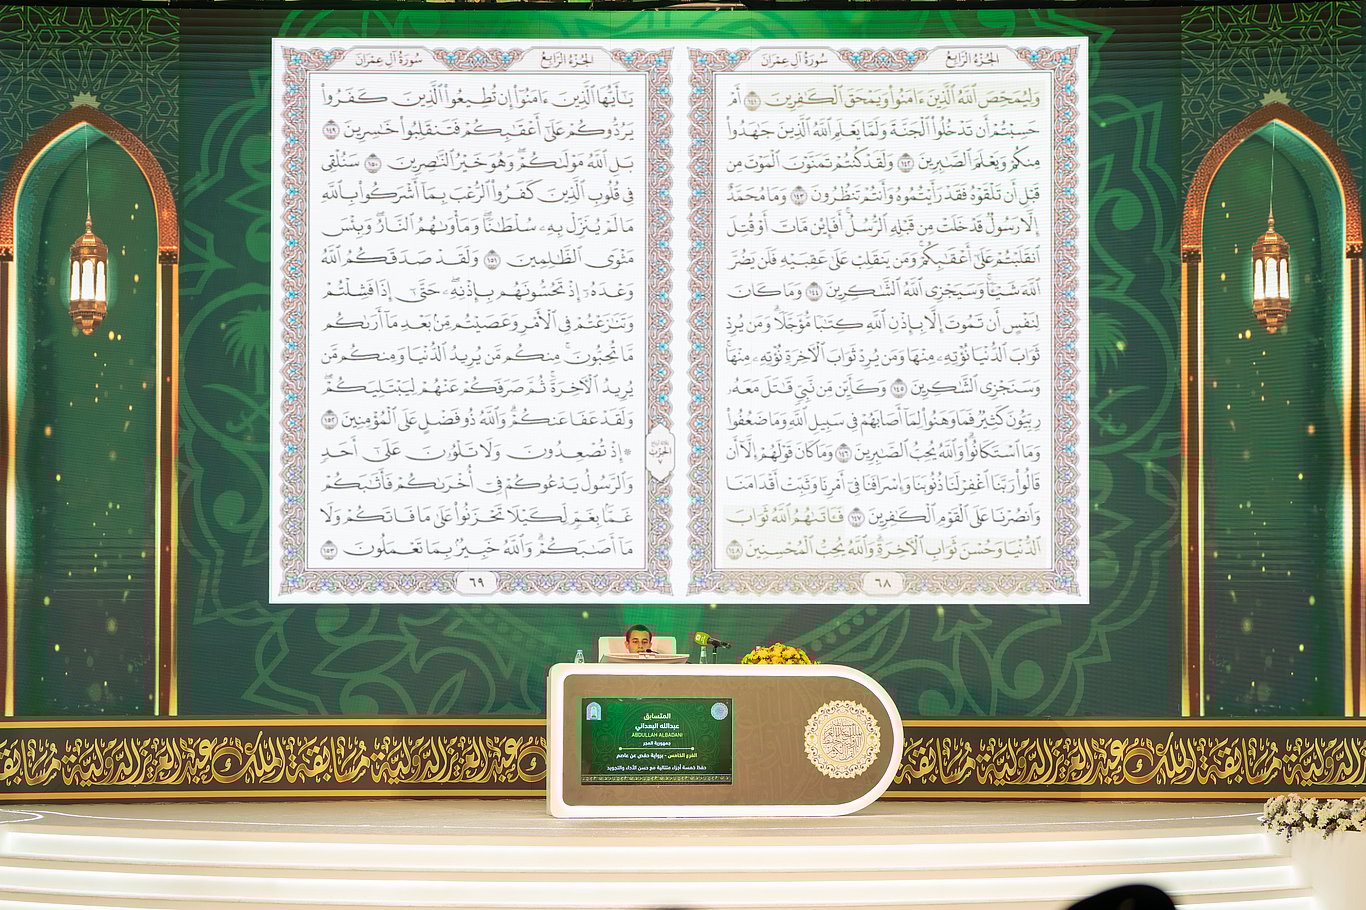 الجزء الرابع
سورة آل عمران
وليمحص الله الذين ءامنوا ويمحق الكفرين ١٤١ أم
حسبتم أن تدخلوا الجنة ولما يعلم الله الذين جهدوا
منكم ويعلم الصبرين ١٤٢ ولقد كنتم تمنون الموت من
قبل أن تلقوه فقد رأيتموه وأنتم تنظرون ١٤٣ وما محمد
إلا رسول قد خلت من قبله الرسل أفإين مات أو قتل
انقلبتم على أعقبكم ومن ينقلب على عقبيه فلن يضر
الله شيئا وسيجزى الله الشكرين ١٤٤ وما كان
لنفس أن تموت إلا بإذن الله كتبا مؤجلا ومن يرد
ثواب الدنيا نؤته منها ومن يرد ثواب الآخرة نؤته منها
وسنجزى الشكرين ١٤٥ وكأين من نبي قتل معه
ربيون كثير فما وهنوا لما أصابهم في سبيل الله وما ضعفوا
وما استكانوا والله يحب الصبرين ١٤٦ وما كان قولهم إلا أن
قالوا ربنا اغفر لنا ذنوبنا وإسرافنا في أمرنا وثبت أقدامنا
وانصرنا على القوم الكفرين ١٤٧ فـاتىهم الله ثواب
الدنيا وحسن ثواب الآخرة والله يحب المحسنين ١٤٨
٦٨
الجزء الرابع
سورة آل عمران
يـأيها الذين ءامنوا إن تطيعوا الذين كفروا
يردوكم على أعقبكم فتنقلبوا خسرين ١٤٩
بل الله مولىكم وهو خير النصرين ١٥٠ سنلقي
في قلوب الذين كفروا الرعب بما أشركوا بالله
ما لم ينزل به سلطنا ومأوىهم النار وبئس
مثوى الظلمين ١٥١ ولقد صدقكم الله
وعده إذ تحسونهم بإذنه حتى إذا فشلتم
وتنزعتم في الأمر وعصيتم من بعد ما أرىكم
ما تحبون منكم من يريد الدنيا ومنكم من
يريد الآخرة ثم صرفكم عنهم ليبتليكم
ولقد عفا عنكم والله ذو فضل على المؤمنين ١٥٢
إذ تصعدون ولا تلون على أحد
والرسول يدعوكم في أخرىكم فأثبكم
غما بغم لكيلا تحزنوا على ما فاتكم ولا
ما أصبكم والله خبير بما تعملون ١٥٣
٦٩
المتسابق
عبدالله البعداني
ABDULLAH ALBADANI
جمهورية المجر
الفرع الخامس - برواية حفص عن عاصم
حفظ خمسة أجزاء متتالية مع حسن الأداء والتجويد
مسابقة الملك عبدالعزيز الدولية